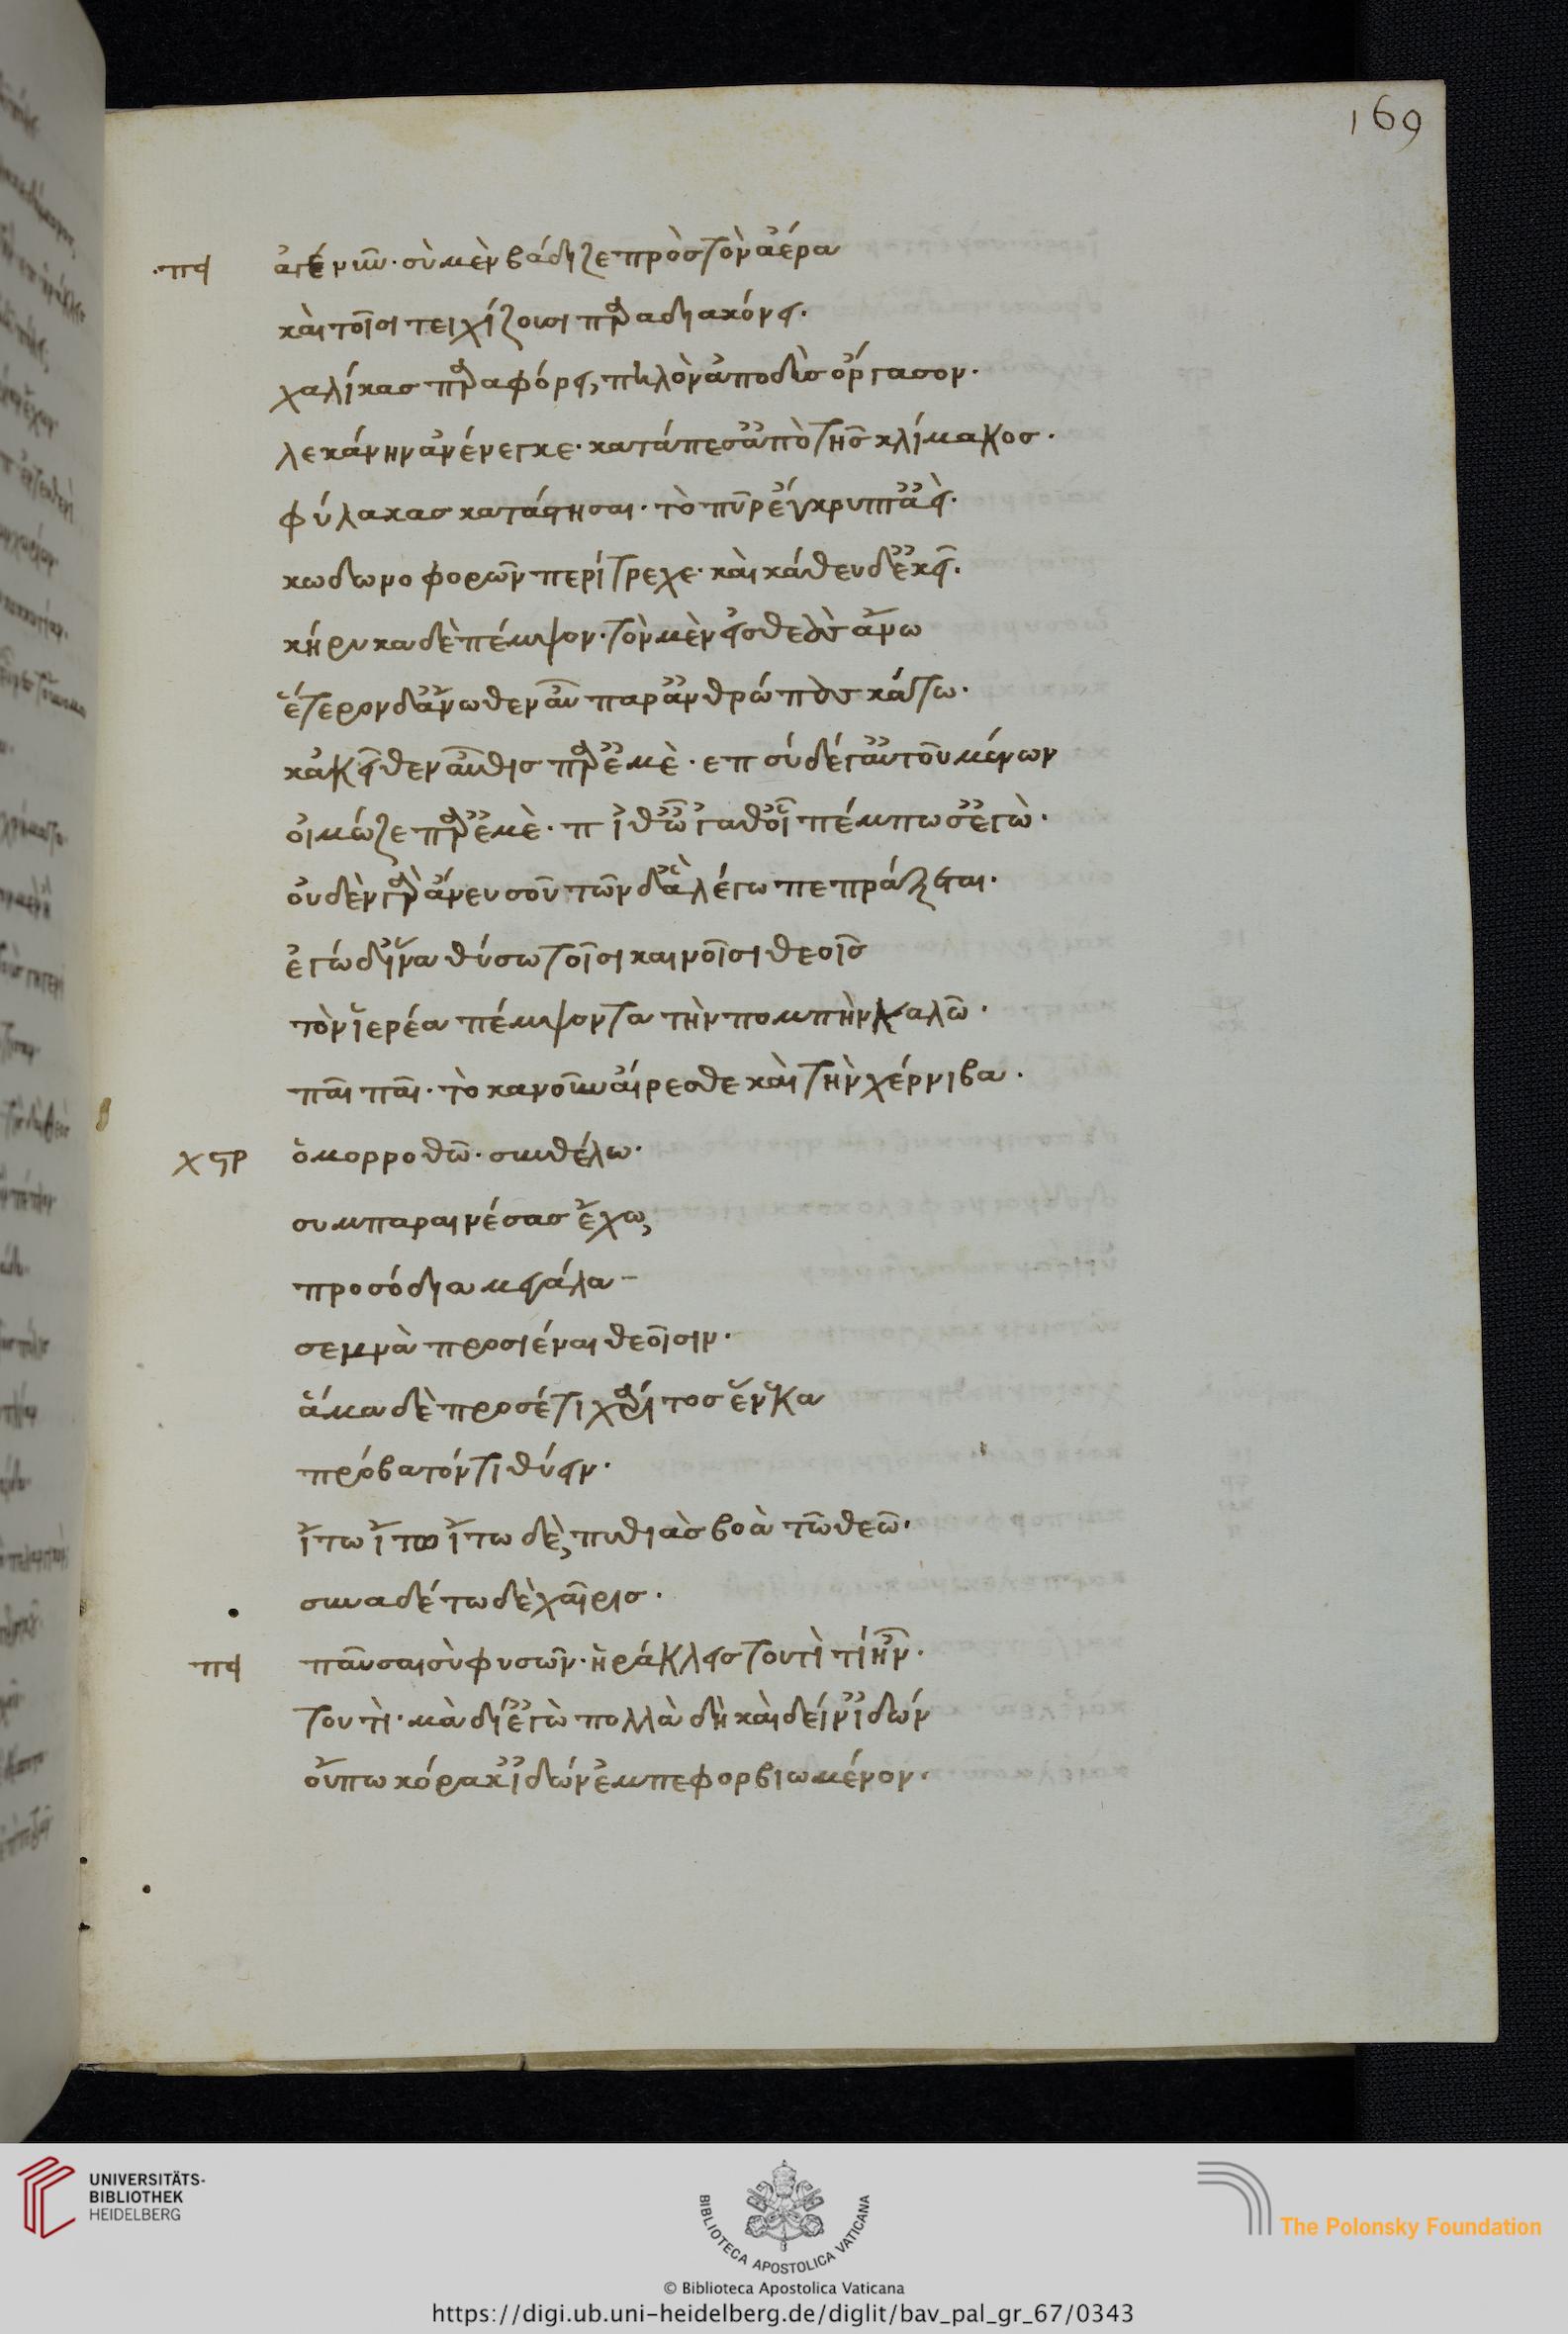 169
πει ἄγε νῦν· σὺ μὲν βάδιζε πρὸς τὸν ἀέρα
καὶ τοῖσι τειχίζουσι παραδιακόνει·
χάλικας παραφόρει, πηλὸν ἀποδὺς ὄργασον·
λεκάνην ἀνένεγκε· κατάπεσ' ἀπὸ τῆς κλίμακος·
φύλακας κατάστησαι· τὸ πῦρ ἔγκρυπτ' ἀεὶ·
κωδωνοφορῶν περίτρεχε· καὶ κάθευδ' ἐκεῖ·
κήρυκα δὲ πέμψον· τὸν μὲν εἰς θεοὺς ἄνω
ἕτερον δ' ἄνωθεν αὖ παρ' ἀνθρώπους κάτω·
κἀκεῖθεν αὖθις παρ' ἐμὲ· επ σύ δέ γ' αὐτοῦ μένων
οἴμωζε παρ' ἐμὲ· π ἴθ' ὦ 'γάθ' οἷ πέμπω σ' ἐγὼ·
οὐδὲν γὰρ ἄνευ σοῦ τῶνδ' ἃ λέγω πεπράξεται·
ἐγώ δ' ἵνα θύσω τοῖσι καινοῖσι θεοῖς
τὸν ἱερέα πέμψοντα τὴν πομπὴν καλῶ·
παῖ παῖ· τὸ κανοῦν αἴρεσθε καὶ τὴν χέρνιβα·
χορ ὁμορροθῶ· συνθέλω·
συμπαραινέσας ἔχω,
προσόδια μεγάλα
σεμνὰ προσιέναι θεοῖσιν·
ἅμα δὲ προσέτι χάριτος ἕνεκα
πρόβατόν τι θύειν·
ἴτω ἴτω ἴτω δὲ, πυθιὰς βοὰ τῶ θεῶ·
συναδέτω δὲ χαῖρις·
πει παῦσαι σὺ φυσῶν· ἡράκλεις τουτὶ τί ἦν·
τουτὶ· μὰ δί' ἐγὼ πολλὰ δὴ καὶ δείν' ἰδών
οὔπω κόρακ' ἰδών ἐμπεφορβιωμένον·
UNIVERSITÄTS-
BIBLIOTHEK
HEIDELBERG
BIBLIOTECA APOSTOLICA VATICANA
The Polonsky Foundation
© Biblioteca Apostolica Vaticana
https://digi.ub.uni-heidelberg.de/diglit/bav_pal_gr_67/0343